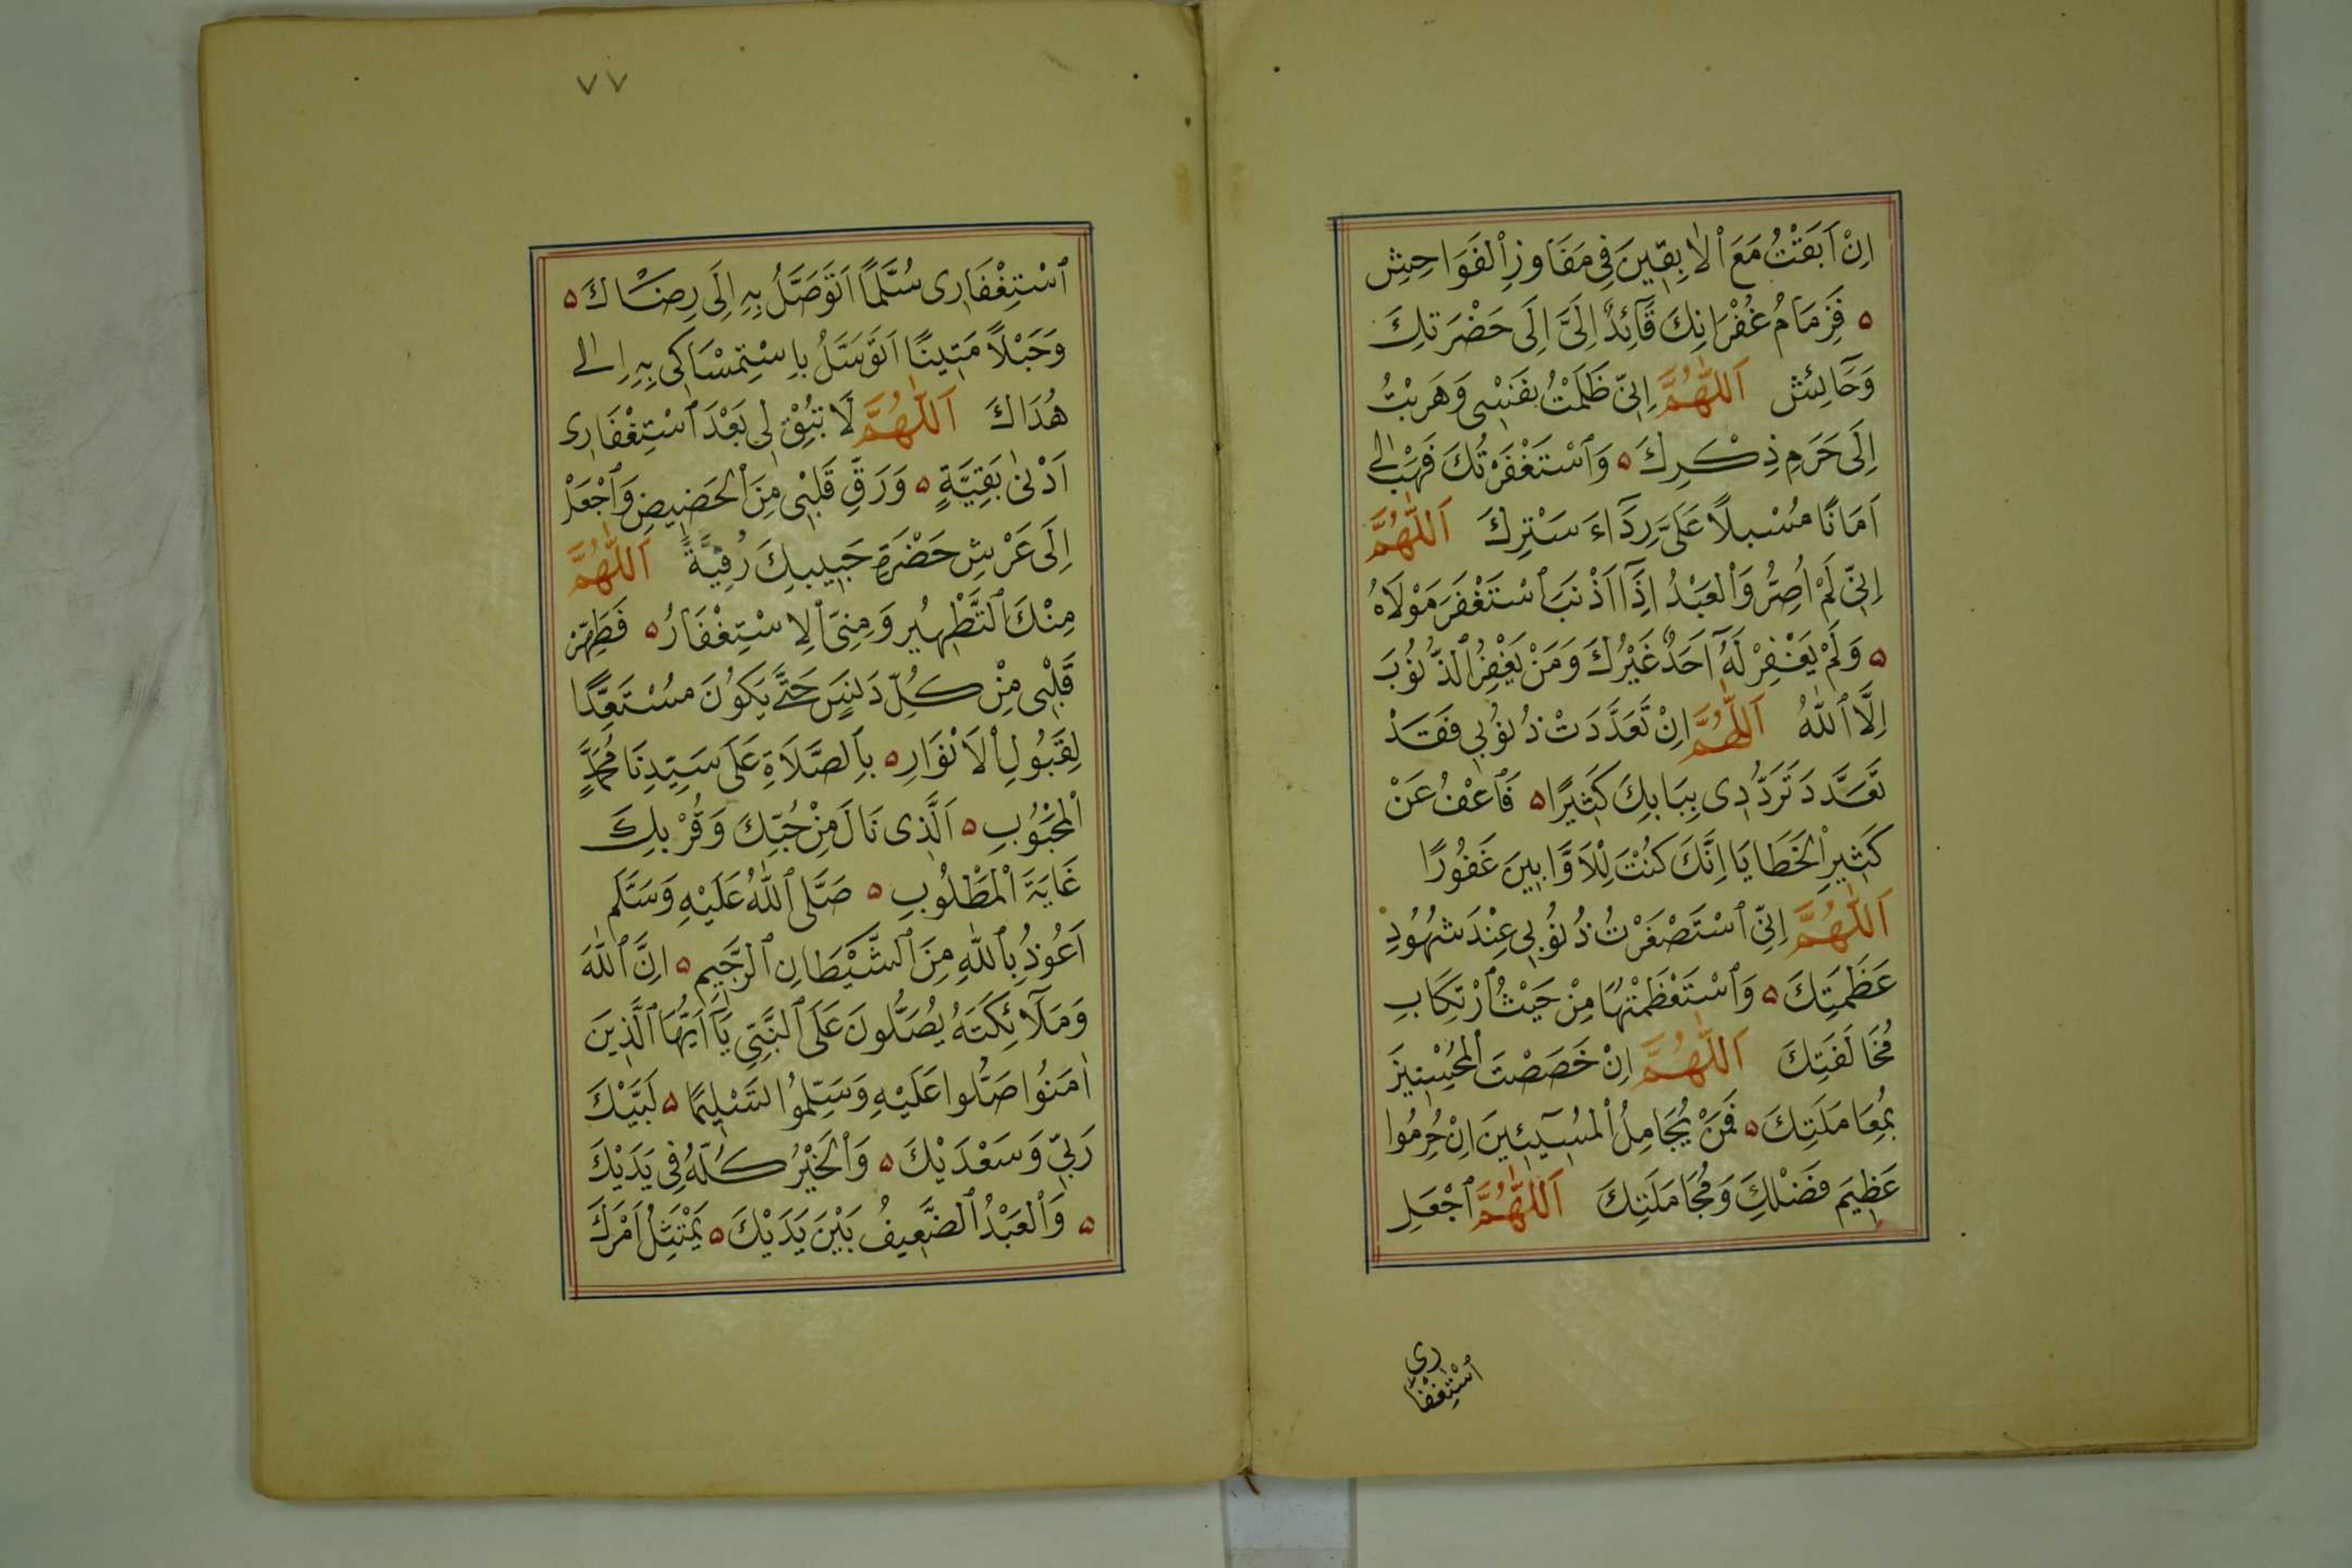 اِنْ اَبَقْتُ مَعَ ٱلْاٰبِقِينَ فِى مَفَاوِزِ ٱلْفَوَاحِشِ
ه فَزِمَامُ غُفْرَانِكَ قَآئِدٌ اِلَىَّ اِلَى حَضْرَتِكَ
وَحَآئِشٌ اَللّٰهُمَّ اِنِّى ظَلَمْتُ نَفْسِى وَهَرَبْتُ
اِلَى حَرَمِ ذِكْرِكَ ه وَٱسْتَغْفَرْتُكَ فَهَبْ لِى
اَمَانًا مُسْبِلًا عَلَىَّ رِدَآءَ سَتْرِكَ اَللّٰهُمَّ
اِنِّى لَمْ اُصِرُّ وَٱلْعَبْدُ اِذَآ اَذْنَبَ ٱسْتَغْفَرَ مَوْلَاهُ
ه وَلَمْ يَغْفِرْ لَهُٓ اَحَدٌ غَيْرُكَ وَمَنْ يَغْفِرُ ٱلذُّنُوبَ
اِلَّا ٱللّٰهُ اَللّٰهُمَّ اِنْ تَعَدَّدَتْ ذُنُوبِى فَقَدْ
تَعَدَّدَ تَرَدُّدِى بِبَابِكَ كَثِيرًا ه فَٱعْفُ عَنْ
كَثِيرِ ٱلْخَطَايَا اِنَّكَ كُنْتَ لِلْاَوَّابِينَ غَفُورًا
اَللّٰهُمَّ اِنِّى ٱسْتَصْغَرْتُ ذُنُوبِى عِنْدَ شُهُودِ
عَظَمَتِكَ ه وَٱسْتَعْظَمْتُهَا مِنْ حَيْثُ ٱرْتِكَابِ
مُخَالَفَتِكَ اَللّٰهُمَّ اِنْ خَصَصْتَ ٱلْمُحْسِنِينَ
بِمُعَامَلَتِكَ ه فَمَنْ يُجَامِلُ ٱلْمُسِيٓئِينَ اِنْ حُرِمُوا
عَظِيمَ فَضْلِكَ وَمُجَامَلَتِكَ اَللّٰهُمَّ ٱجْعَلِ
ٱسْتِغْفَارِى
٧٧
ٱسْتِغْفَارِى سُلَّمًا اَتَوَصَّلُ بِهِ اِلَى رِضَاكَ ه
وَحَبْلًا مَتِينًا اَتَوَسَّلُ بِاِسْتِمْسَاكِى بِهِ اِلٰى
هُدَاكَ اَللّٰهُمَّ لَا تُبْقِ لِى بَعْدَ ٱسْتِغْفَارِى
اَدْنٰى بَقِيَّةٍ ه وَرَقِّ قَلْبِى مِنَ ٱلْحَضِيضِ وَٱجْعَلْ
اِلَى عَرْشِ حَضْرَةِ حَبِيبِكَ رُقِيَّةً اَللّٰهُمَّ
مِنْكَ ٱلتَّطْهِيرُ وَمِنِّى ٱلِاسْتِغْفَارُ ه فَطَهِّرْ
قَلْبِى مِنْ كُلِّ دَنَسٍ حَتَّى يَكُونَ مُسْتَعِدًّا
لِقَبُولِ ٱلْاَنْوَارِ ه بِٱلصَّلَاةِ عَلَى سَيِّدِنَا مُحَمَّدٍ
ٱلْمَحْبُوبِ ه اَلَّذِى نَالَ مِنْ حُبِّكَ وَقُرْبِكَ
غَايَةَ ٱلْمَطْلُوبِ ه صَلَّى ٱللّٰهُ عَلَيْهِ وَسَلَّمَ
اَعُوذُ بِٱللّٰهِ مِنَ ٱلشَّيْطَانِ ٱلرَّجِيمِ ه اِنَّ ٱللّٰهَ
وَمَلَآئِكَتَهُ يُصَلُّونَ عَلَى ٱلنَّبِىِّ يَآ اَيُّهَا ٱلَّذِينَ
اٰمَنُوا صَلُّوا عَلَيْهِ وَسَلِّمُوا تَسْلِيمًا ه لَبَّيْكَ
رَبِّى وَسَعْدَيْكَ ه وَٱلْخَيْرُ كُلُّهُ فِى يَدَيْكَ
ه وَٱلْعَبْدُ ٱلضَّعِيفُ بَيْنَ يَدَيْكَ ه يَمْتَثِلُ اَمْرَكَ